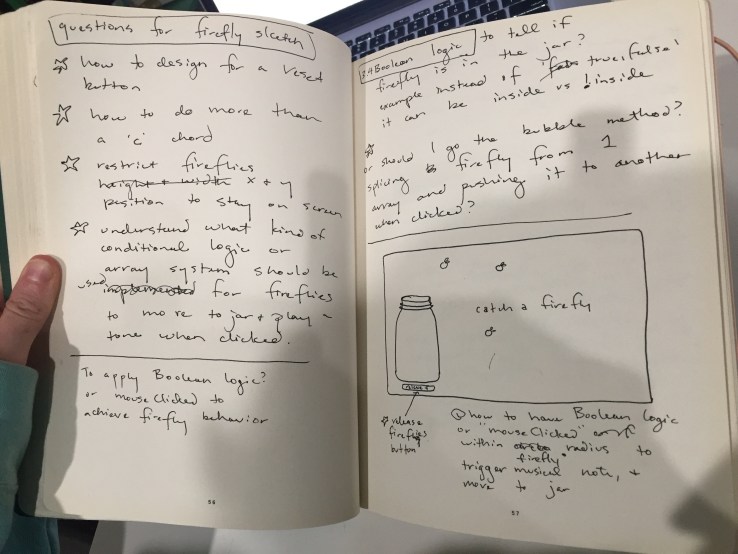 questions for firefly sketch
how to design for a reset
button
how to do more than
a 'c' chord
restrict fireflies
height + width x + y
position to stay on screen
understand what kind of
conditional logic or
array system should be
used implemented for fireflies
to move to jar + play a
tone when clicked.
To apply Boolean logic?
or mouseClicked to
achieve firefly behavior
56
3.4 Boolean logic to tell if
firefly is in the jar?
example instead of true, false!
it can be inside vs !inside
or should I go the bubble method?
splicing firefly from 1
array and pushing it to another
when clicked?
catch a firefly
release
fireflies
button
how to have Boolean logic
or "mouseClicked"
within radius to
firefly
trigger musical note, +
move to jar
57